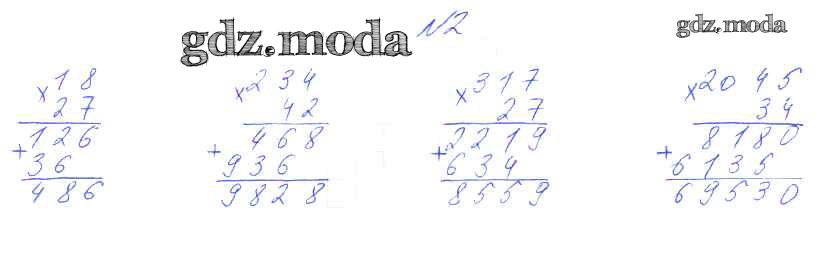 gdz.moda №2 gdz.moda
×18 ×234 ×317 ×2045
27 42 27 34
126 468 2219 8180
+ + + +
36 936 634 6135
486 9828 8559 69530